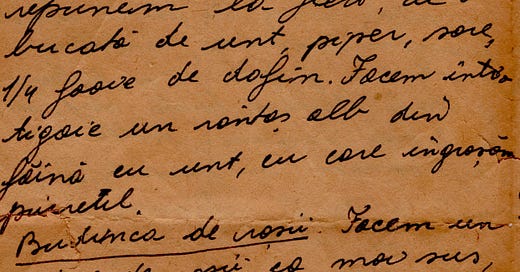 repunem la fiert, cu o
bucată de unt, piper, sare,
1/4 foaie de dafin. Facem într-o
tigaie un rântaș alb din
făină cu unt, cu care îngroșăm
piureul.
Budinca de roșii. Facem un
roșii ca mai sus,